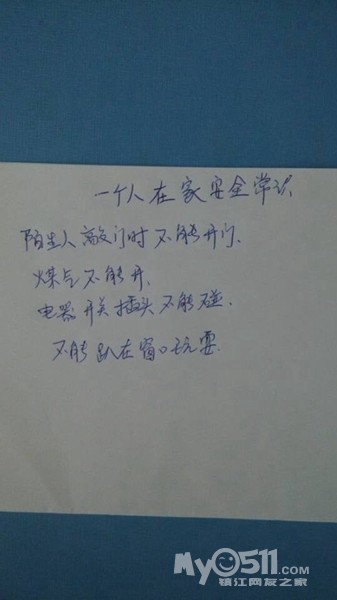 一个人在家安全常识
陌生人敲门时不能开门.
煤气不能开.
电器开关插头不能碰.
不能趴在窗口玩耍.
My0511.com
镇江网友之家